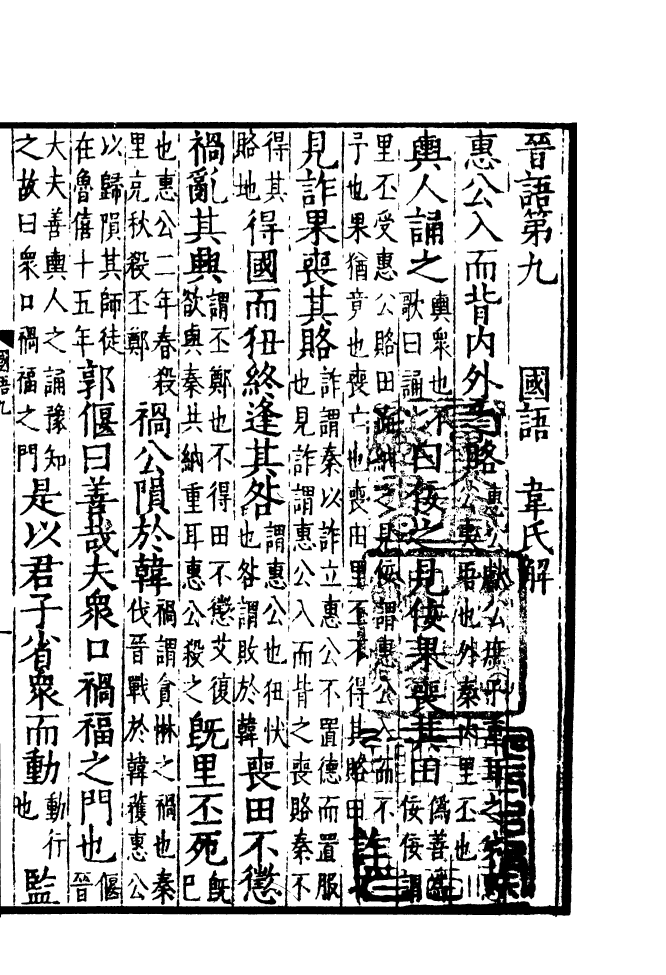 晉語第九　國語　韋氏解
惠公入而背內外之賂惠公獻公庶子重耳之弟夷吾也外秦內里丕也
輿人誦之輿眾也不歌曰誦曰佞之見佞果喪其田偽善為佞佞謂
里丕受惠公賂田而納之見佞謂惠公入而不予也果猶竟也喪亡也喪田里丕不得其賂田
見詐果喪其賂詐謂秦以詐立惠公不置德而置服也見詐謂惠公入而背之喪賂秦不
得其賂地得國而狃終逢其咎謂惠公也狃忕也咎謂敗於韓喪田不懲
禍亂其興謂丕鄭也不得田不懲艾復欲與秦共納重耳惠公殺之既里丕死既巳
也惠公二年春殺里克秋殺丕鄭禍公隕於韓禍謂貪惏之禍也秦伐晉戰於韓獲惠公
以歸隕其師徒在魯僖十五年郭偃曰善哉夫眾口禍福之門也偃晉
大夫善輿人之誦豫知之故曰眾口禍福之門是以君子省眾而動動行也監
國語九